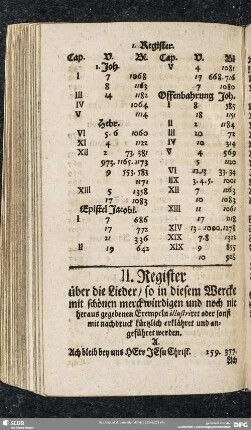 1. Register.
Cap. V. Bl.
1. Joh.
I 7 1068
8 1163
III 4 1182
IV 1064
V 1114
Hebr.
VI 5. 6 1060
XI 4 1122
XII 2 73. 381
973. 1165. 1173
9 553. 583
1171
XIII 5 1358
17 1083
Epistel Jacobi.
I 7 686
17 1118
21 336
II 19 642
Cap. V. Bl
V 4 1081
17 668. 716
7 1080
Offenbahrung Joh.
I 8 585
18 151
II 2 1184
III 20 72
IV 10 314
V 4 569
10 130
VI 12. 13 33. 34
IIX 3. 4. 5. 1001
XII 7 1163
10 1083
XIII 11 1061
17 772
XIV 13 1090. 1278
XIX 7. 8 1321
XIX 9 855
10 926
II. Register
über die Lieder / so in diesem Wercke
mit schönen merckwürdigen und noch nie
heraus gegebenen Exempeln illustriret oder sonst
mit nachdruck kürtzlich erklähret und an-
geführet werden.
A.
Ach bleib bey uns HErr JEsu Christ. 159. 377.
Ach
SLUB